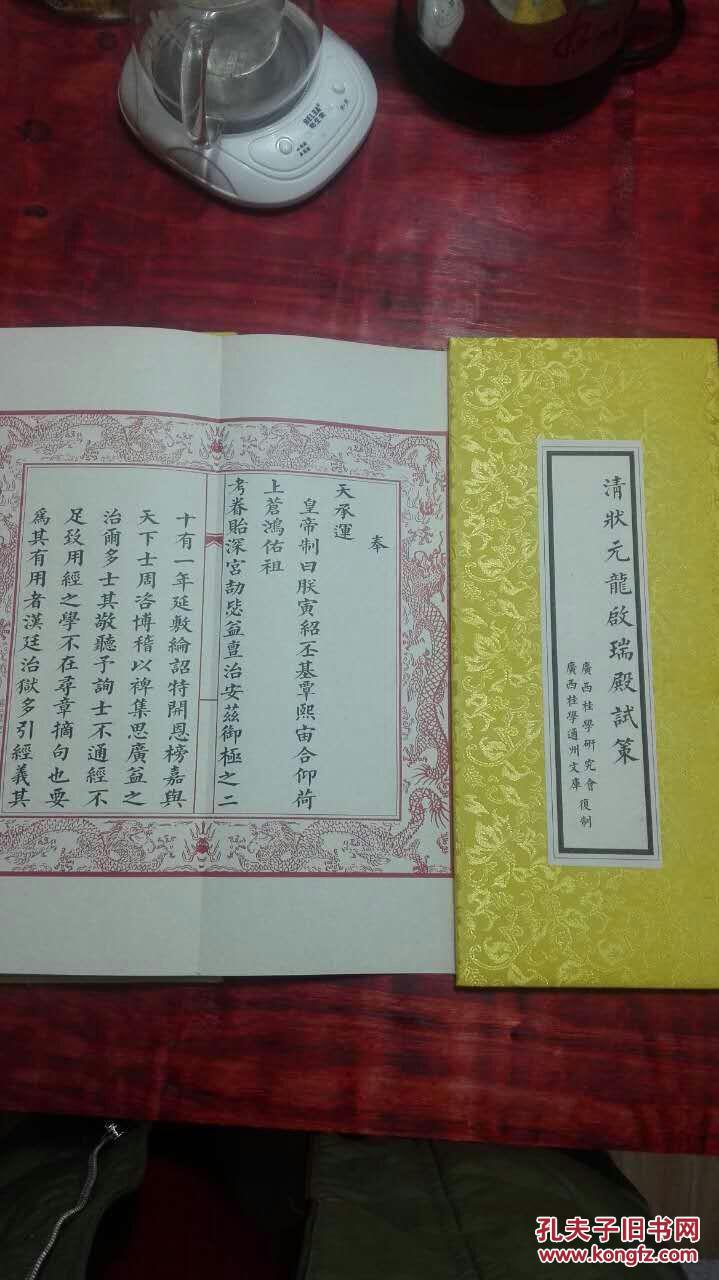 奉
天承運
皇帝制曰朕寅紹丕基覃熙宙合仰荷
上蒼鴻佑祖
考眷貽深宮劼毖益亶治安茲御極之二
十有一年延敷綸詔特開恩榜嘉與
天下士周咨博稽以裨集思廣益之
治爾多士其敬聽予詢士不通經不
足致用經之學不在尋章摘句也要
爲其有用者漢廷治獄多引經義其
清狀元龍啟瑞殿試策
廣西桂學研究會
廣西桂學通州文庫
復制
BELBA
孔夫子旧书网
www.kongfz.com